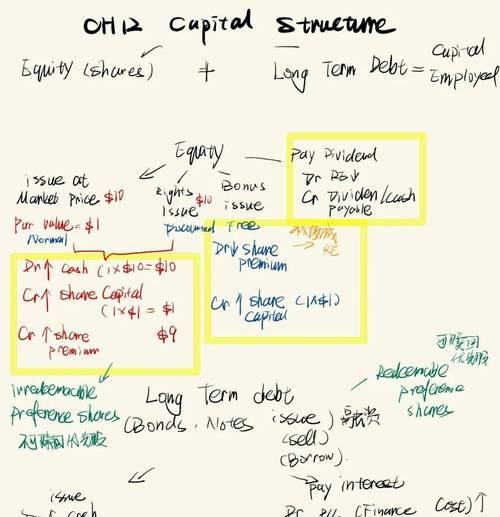 CH12 Capital Structure
Equity (shares) + Long Term Debt = Capital Employed
Equity
issue at
Market price $10
Par value = $1
Normal
Rights $10
Issue
Discounted
Bonus
issue
Free
Pay Dividend
Dr RE↓
Cr Dividen/cash
payable
Dr↑ cash (1×$10=$10
Cr↑ share Capital
(1×$1 = $1
Cr↑ share $9
premium
Dr↓ share
premium
RE
Cr↑ share (1×$1)
capital
irredeemable
preference shares
不可赎回优先股
可赎回
优先股
Redeemable
preference
shares
Long Term debt
(Bonds, Notes issue) 融资
(sell)
(Borrow).
issue
cash
pay interest
Dr (Finance Cost)↑